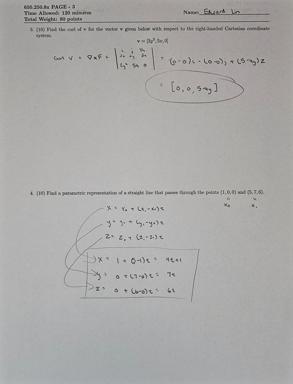 650.250.8x PAGE - 3
Time Allowed: 120 minutes
Total Weight: 80 points
Name: Edward Lin
3. (10) Find the curl of v for the vector v given below with respect to the right-handed Cartesian coordinate
system.
v = [2y², 5x, 0]
curl v = ∇xF =
= (0-0)i - (0-0)j +
= [0, 0, 5-4y]
4. (10) Find a parametric representation of a straight line that passes through the points (1,0,0) and (5,7,6).
x = x₀ + (x₁-x₀)t
y = y₀ + (y₁-y₀)t
z = z₀ + (z₁-z₀)t
x = 1 + (5-1)t = 4t+1
y = 0 + (7-0)t = 7t
z = 0 + (6-0)t = 6t